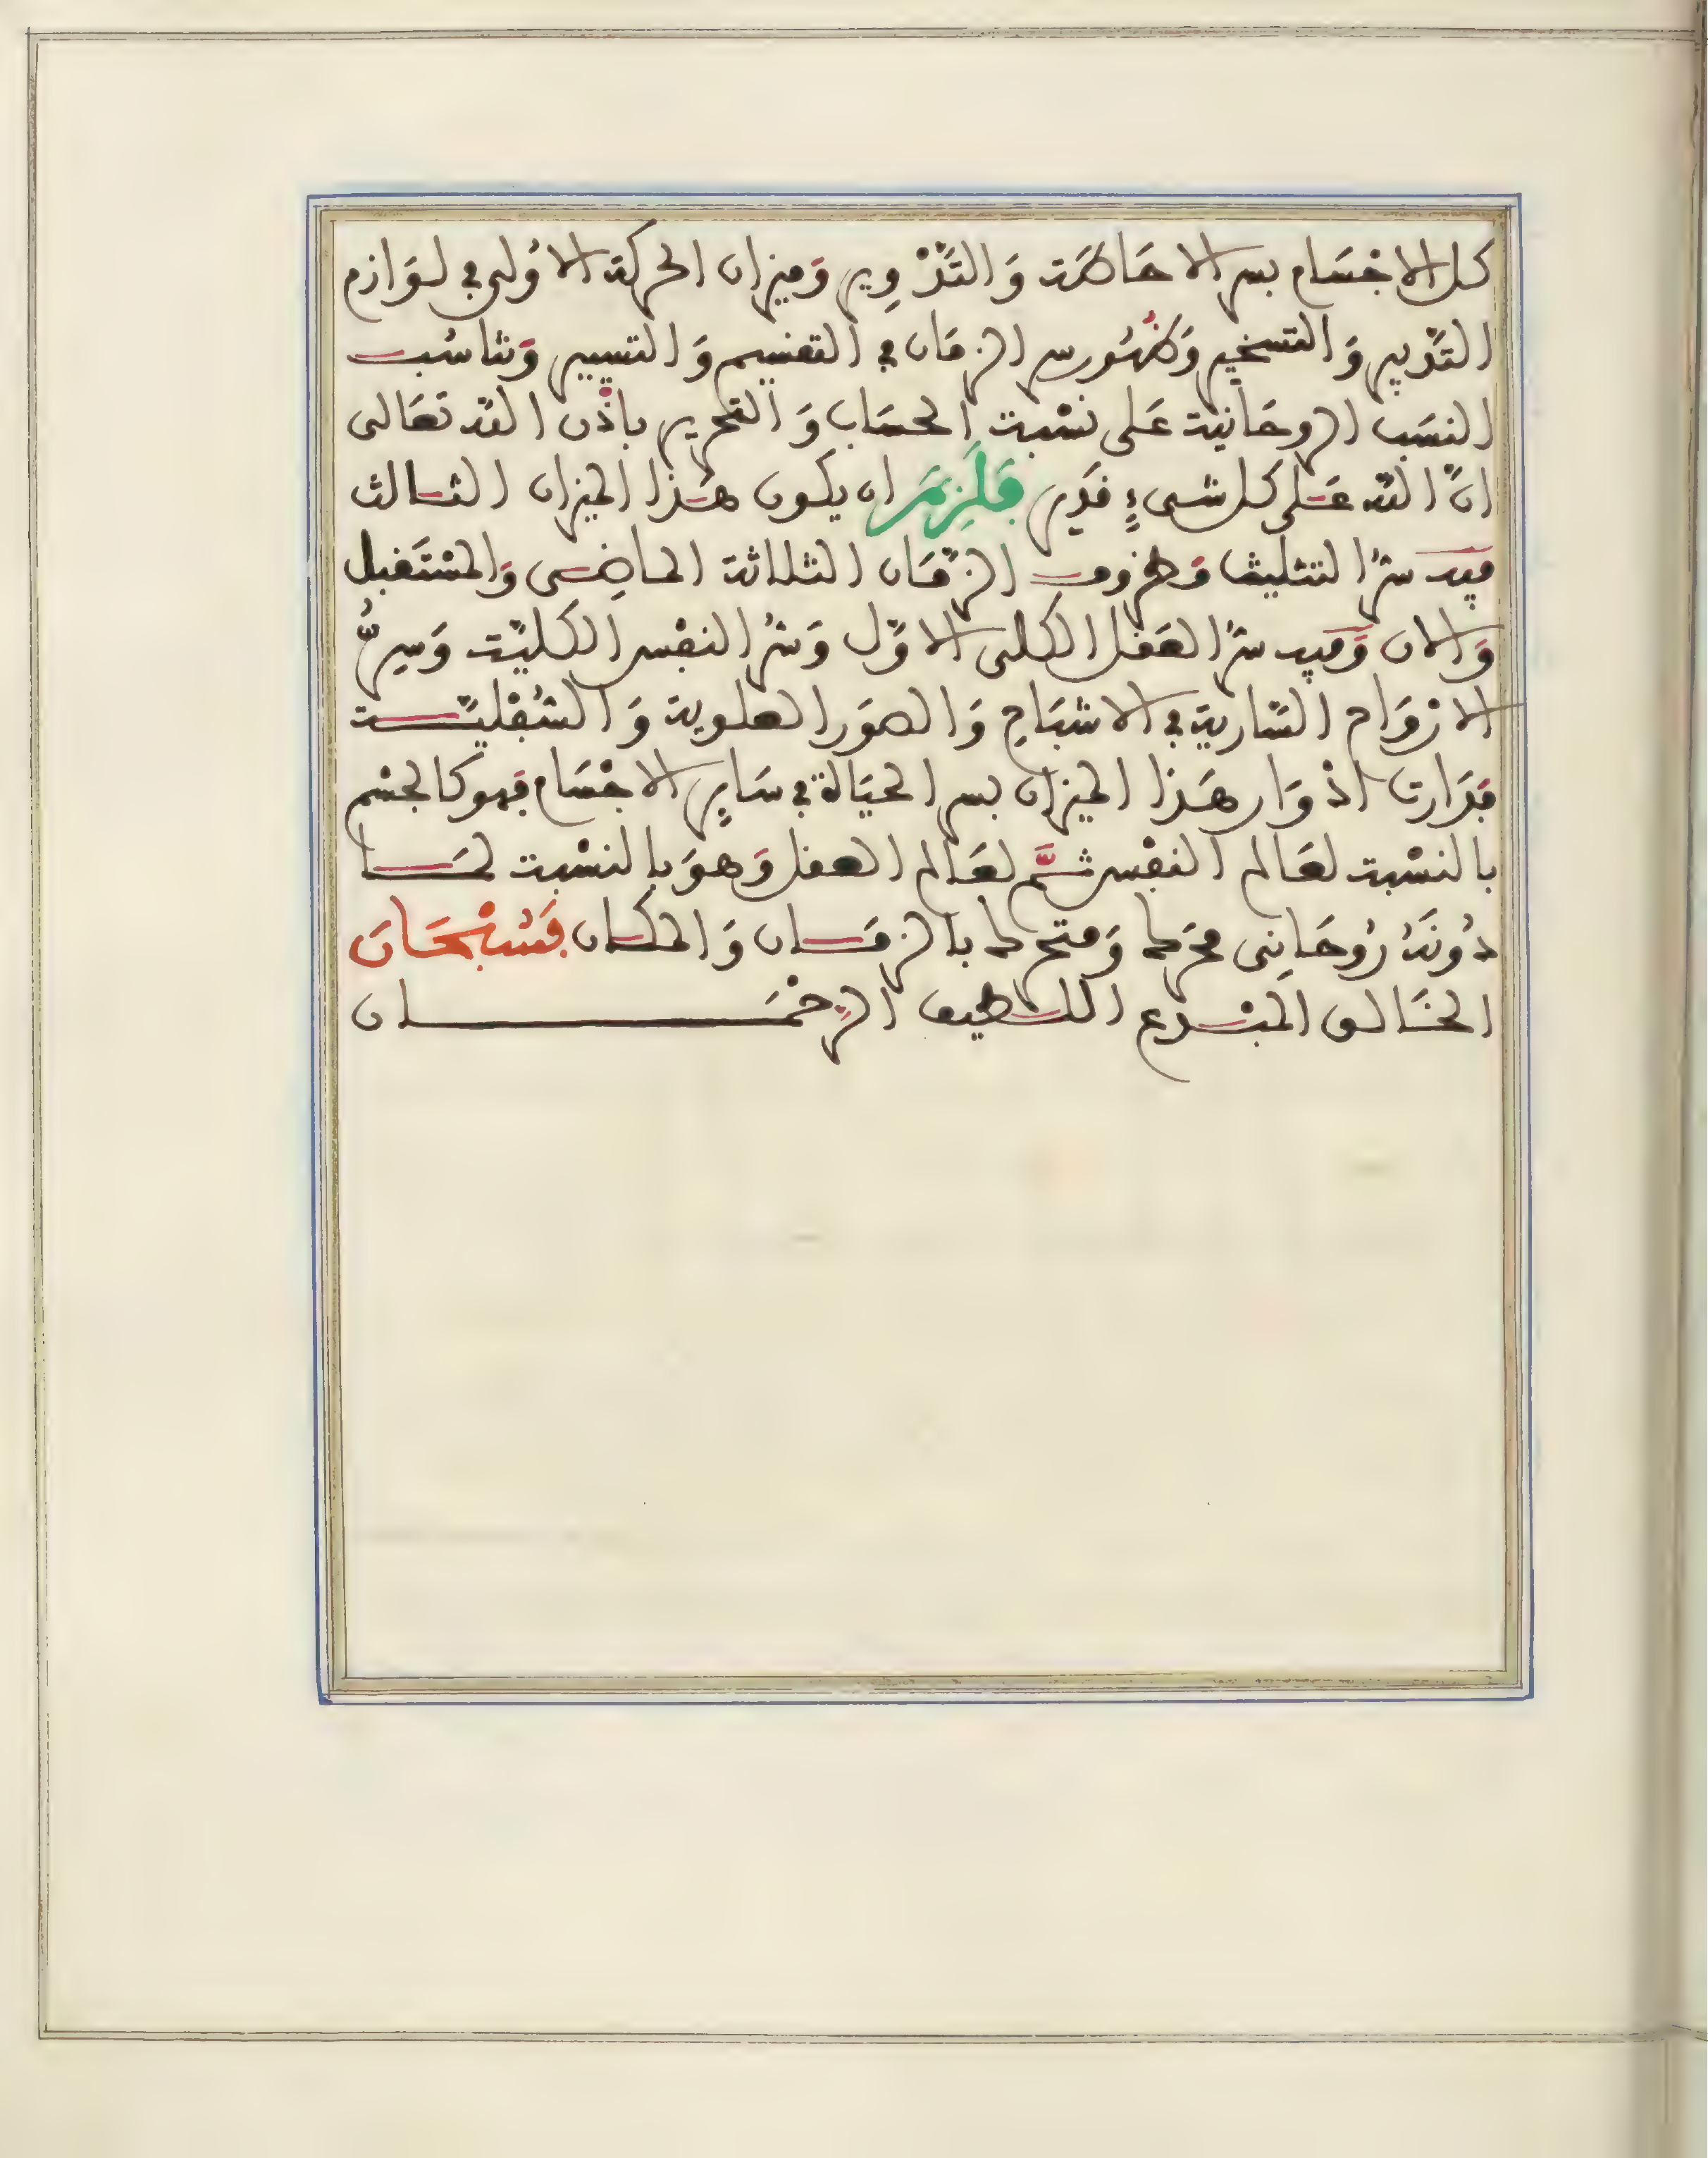 كل الاجْسَام بسر الاحَاطَة وَالتَّدْوِير وَميزان الحركة الاوُلى في لوَازم
التَّدْبير وَالتسخير وَظهُور سر الزمَان في التقسيم وَالتسيير وَتناسُب
النسَب الروحَانية عَلى نسْبة الحسَاب وَالتحرير باذْن الله تعَالى
انَّ الله عَلى كل شىءٍ قدَير فَلَزِمَ ان يكون هَذا الميزان الثالث
فيه سرّ التثليث وَظروف الزّمَان الثلاثة الماضِى وَالمسْتَقبل
وَالان وَفيه سرّ العَقل الكلى الاوّل وَسرُّ النفْس الكليّة وَسِرُّ
الارْوَاح السّارية في الاشبَاحِ وَالصوَر العلوية وَالسُفْليّة
فدَارت ادْوَار هَذا الميزان بسر الحيَاة في سَايِر الاجْسَام فهو كالجسْم
بالنسْبة لعَالم النفْس ثمَّ لعَالم العقل وَهوَ بالنسْبة لمَا
دُونَهُ رُوحَانِى محَرك وَمتحرك بالزمَان وَالمكان فَسُبْحَان
الخَالق المبْدع اللطيف الرحْمَان